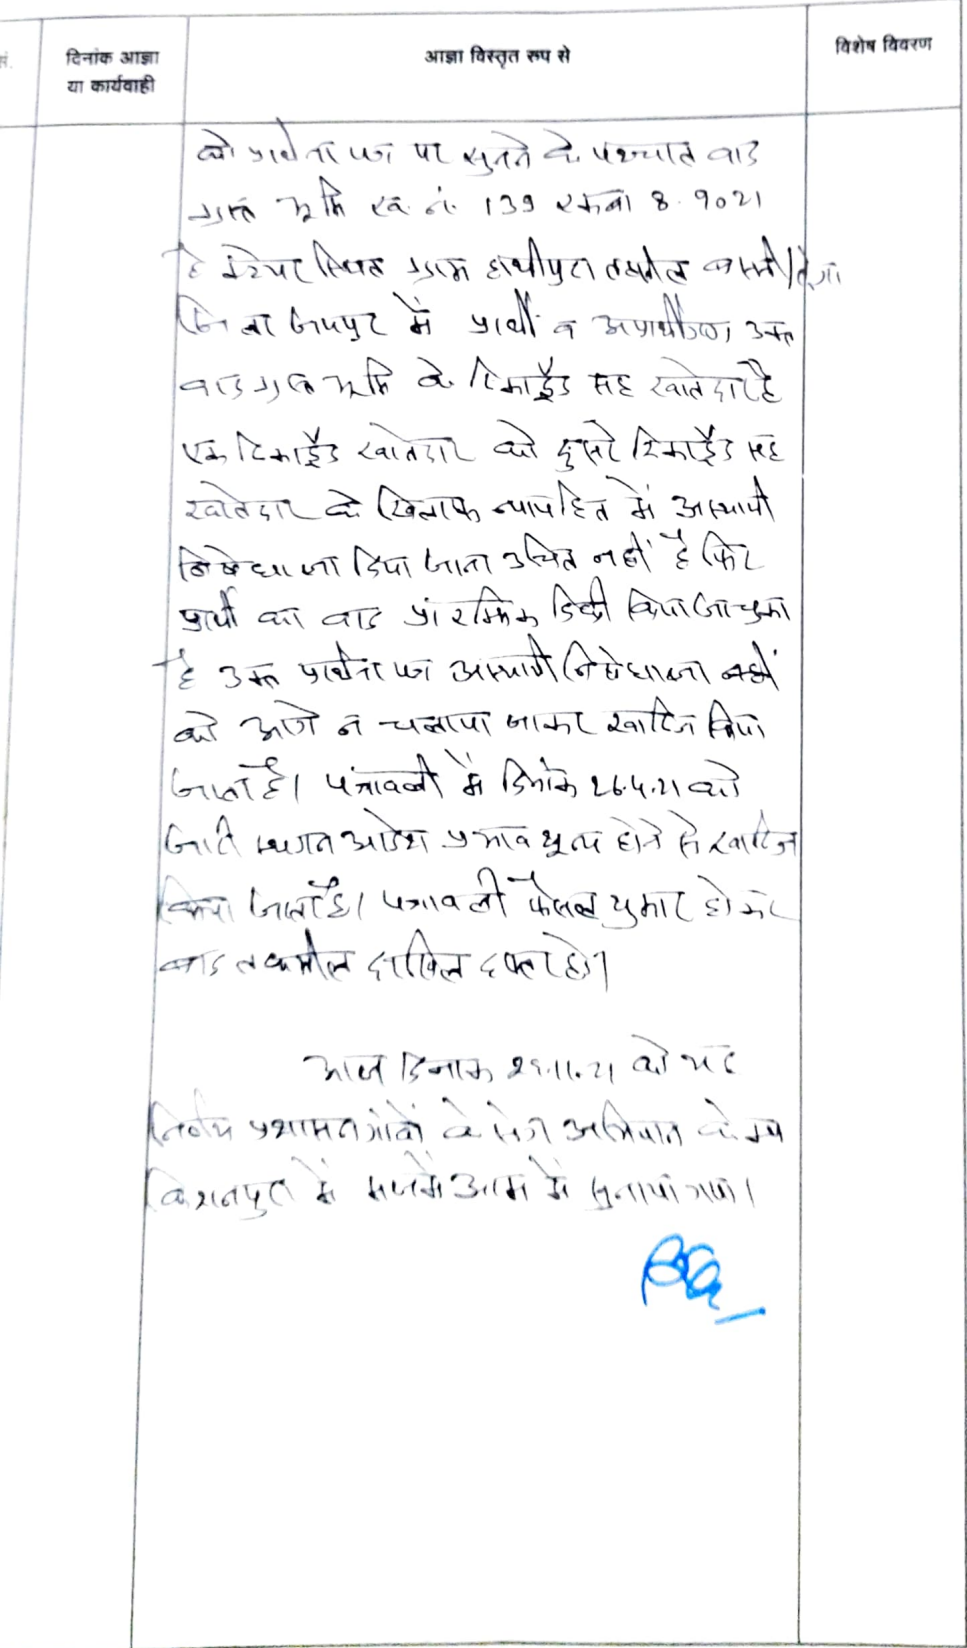 सं.
दिनांक आज्ञा
या कार्यवाही
आज्ञा विस्तृत रूप से
विशेष विवरण
को प्रार्थना पत्र पर सुनने के पश्चात वाद
ग्रस्त भूमि ख. नं. 139 रकबा 8.9021
है क्टेयर स्थित ग्राम हाथीपुरा तहसील बस्सी
जिला जयपुर में प्रार्थी व अप्रार्थीगण उक्त
वादग्रस्त भूमि के रिकार्डेड सह खातेदार है
एक रिकार्डेड खातेदार को दुसरे रिकार्डेड सह
खातेदार के खिलाफ न्यायहित में अस्थायी
निषेधाज्ञा दिया जाना उचित नहीं है फिर
प्रार्थी का वाद प्रारम्भिक डिक्री किया जा चुका
है उक्त प्रार्थना पत्र अस्थायी निषेधाज्ञा
को आगे न चलाया जाकर खारिज किया
जाता है। पत्रावली में दिनांक 26.4.21 को
जारी स्थगन आदेश प्रभाव शून्य होने से खारिज
किया जाता है। पत्रावली फैसल शुमार होकर
बाद तकमील दाखिल दफ्तर हो।
आज दिनांक 29.11.21 को यह
निर्णय प्रशासन गांवों के संग अभियान केम्प
किशनपुरा में मजमे आम में सुनाया गया।